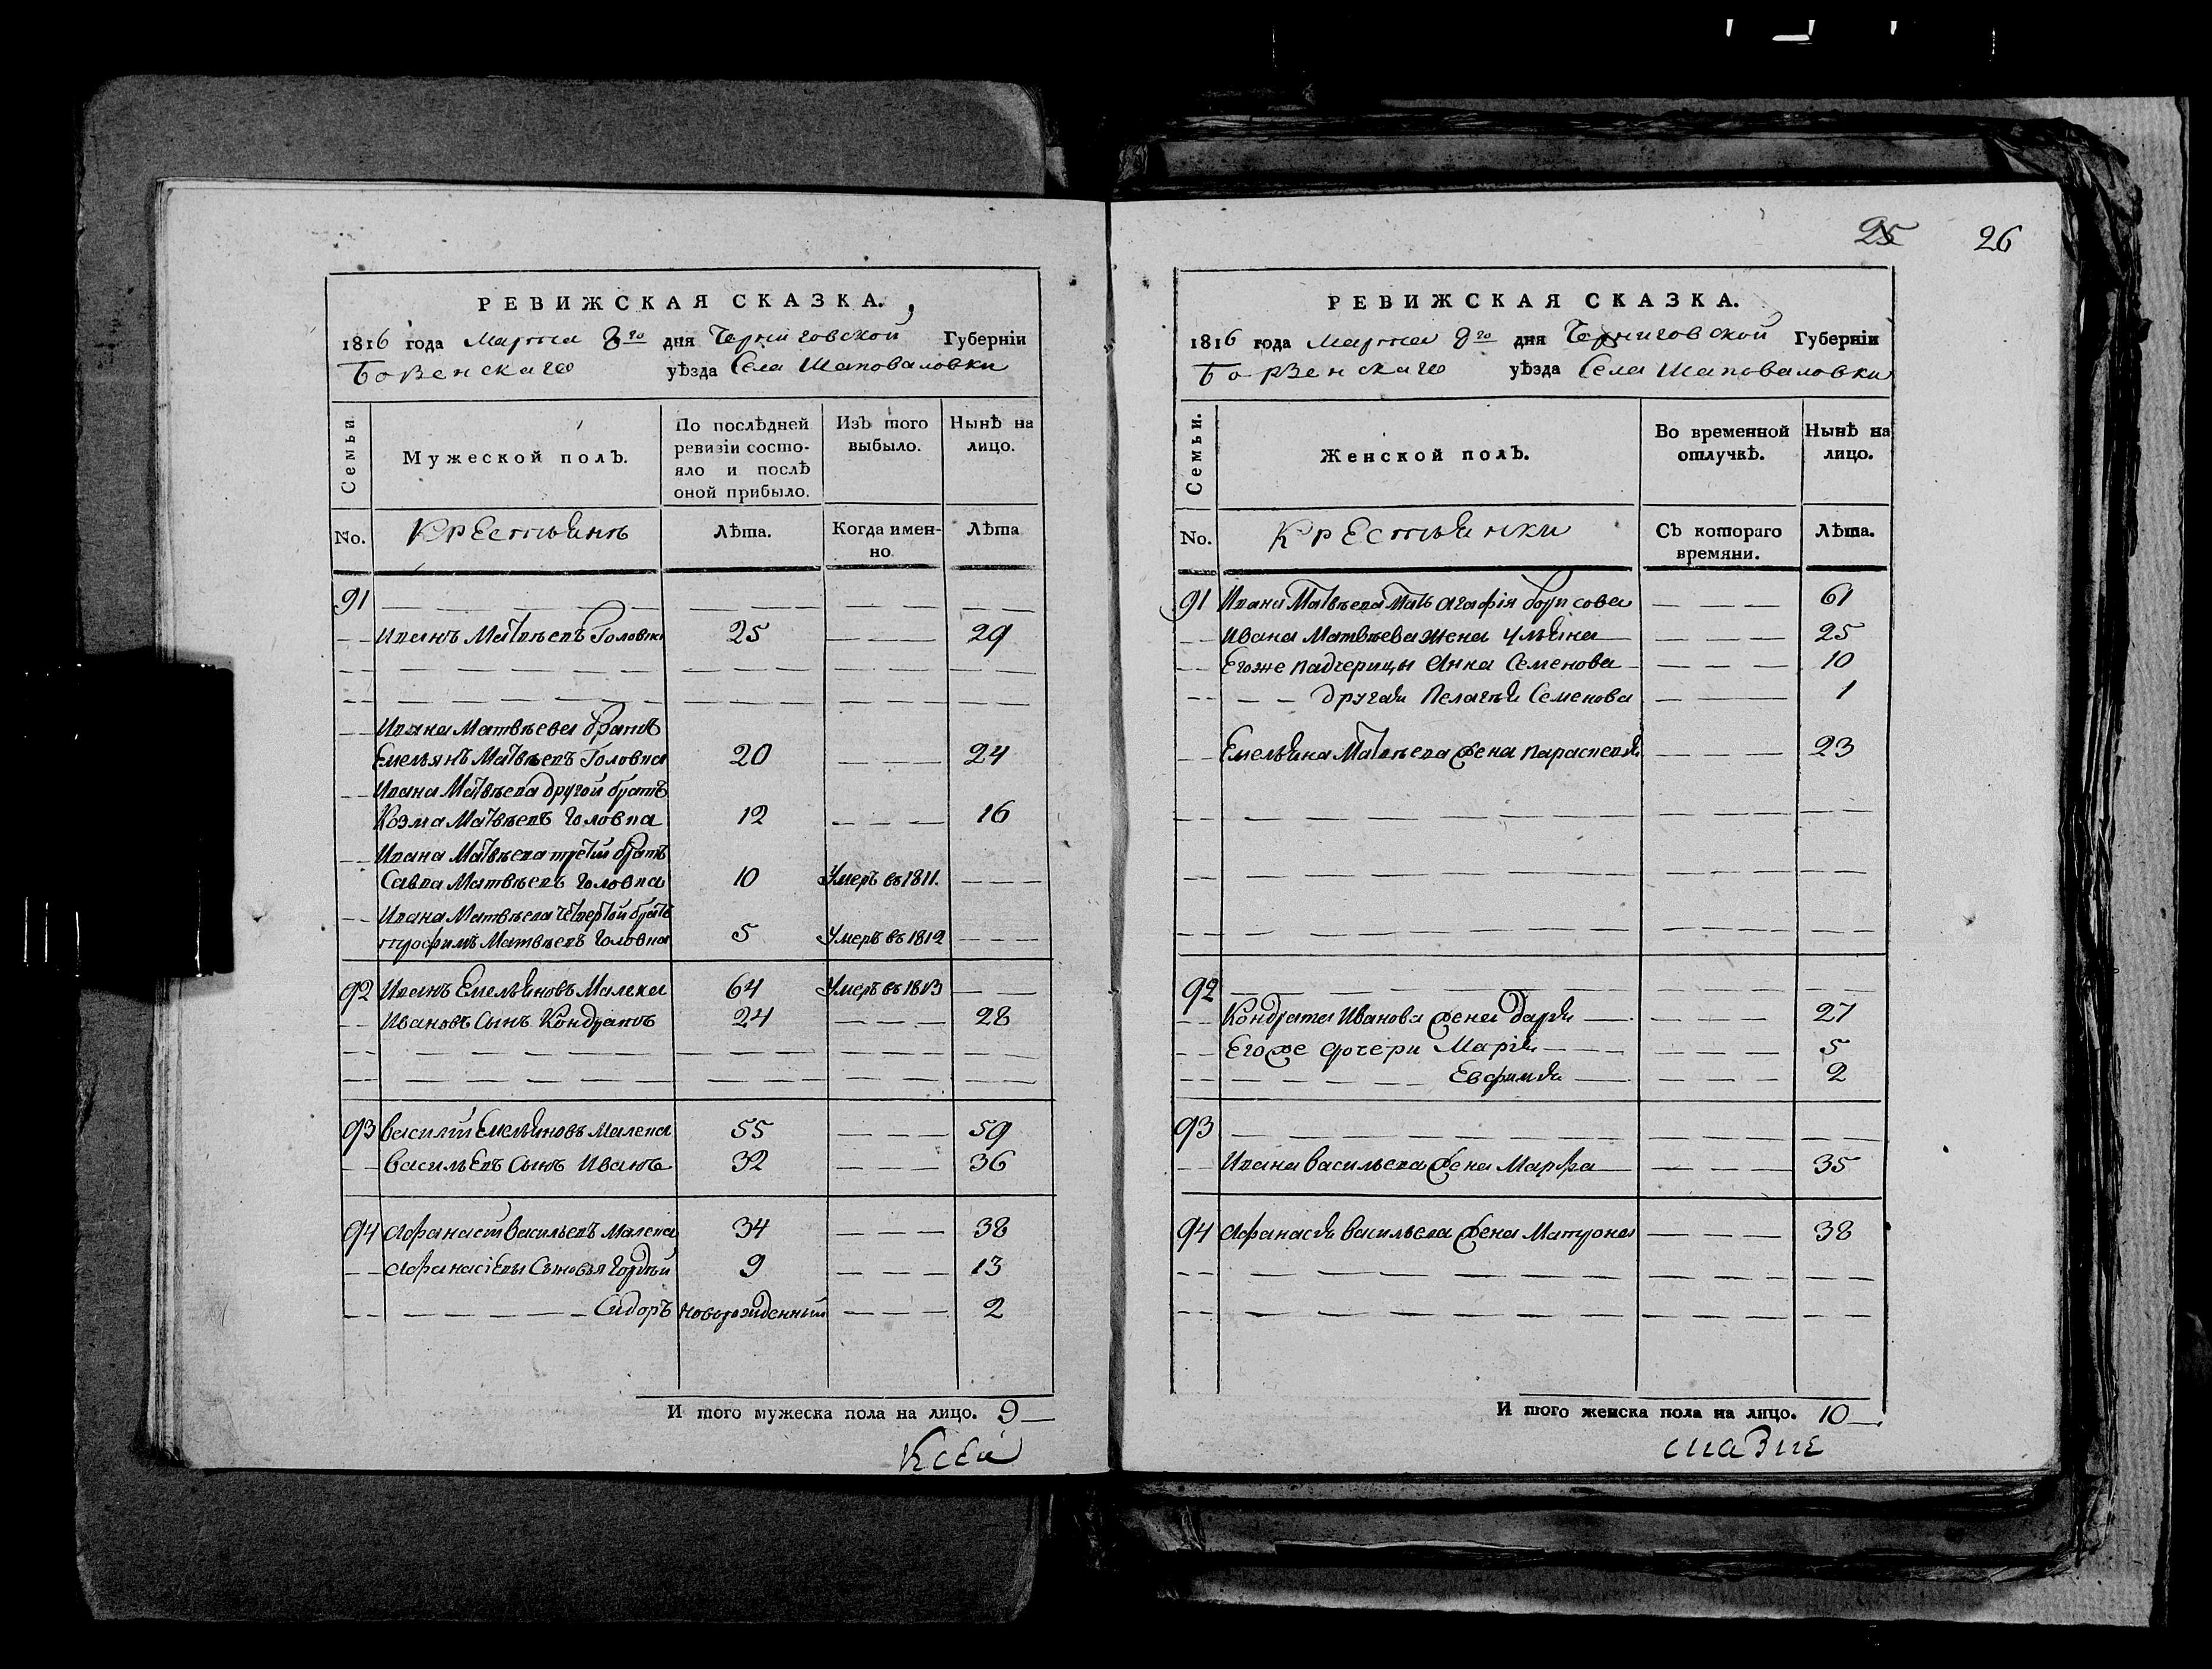 РЕВИЖСКАЯ СКАЗКА.
1816 года Марта 8го дня Черниговской Губерніи
Борзенскаго уѣзда Села Шаповаловки
Семьи
Мужеской полъ.
По послѣдней ревизіи состояло и послѣ оной прибыло.
Изъ того выбыло.
Нынѣ на лицо.
No.
Крестьянъ
Лѣта.
Когда именно.
Лѣта
91
Иванъ Матвѣевъ Головка 25 29
Ивана Матвѣева братъ
Емельянъ Матвѣевъ Головка 20 24
Ивана Матвѣева другой братъ
Козма Матвѣевъ Головка 12 16
Ивана Матвѣева третій братъ
Савва Матвѣевъ Головка 10 Умеръ въ 1811.
Ивана Матвѣева четвертой братъ
Трофимъ Матвѣевъ Головка 5 Умеръ въ 1812
92 Иванъ Емельяновъ Малека 64 Умеръ въ 1813
Ивановъ Сынъ Кондратъ 24 28
93 Василій Емельяновъ Малека 55 59
Васильевъ Сынъ Иванъ 32 36
94 Афанасій Васильевъ Малека 34 38
Афанасіевы Сыновья Гордѣй 9 13
Сидоръ новорожденный 2
И того мужеска пола на лицо. 9
Ксей
25 26
РЕВИЖСКАЯ СКАЗКА.
1816 года Марта 8го дня Черниговской Губерніи
Борзенскаго уѣзда Села Шаповаловки
Семьи.
Женской полъ.
Во временной отлучкѣ.
Нынѣ на лицо.
No.
Крестьянки
Съ котораго времяни.
Лѣта.
91 Ивана Матвѣева Мать Агафія Борисова 61
Ивана Матвѣева жена Ульяна 25
Егоже падчерицы Анна Семенова 10
другая Пелагѣя Семенова 1
Емельяна Матвѣева жена Парасковя 23
92
Кондрата Иванова жена Дарья 27
Егоже дочери Марія 5
Евфимия 2
93
Ивана Васильева жена Марфа 35
94 Афанасія Васильева жена Матрона 38
И того женска пола на лицо. 10
сказке